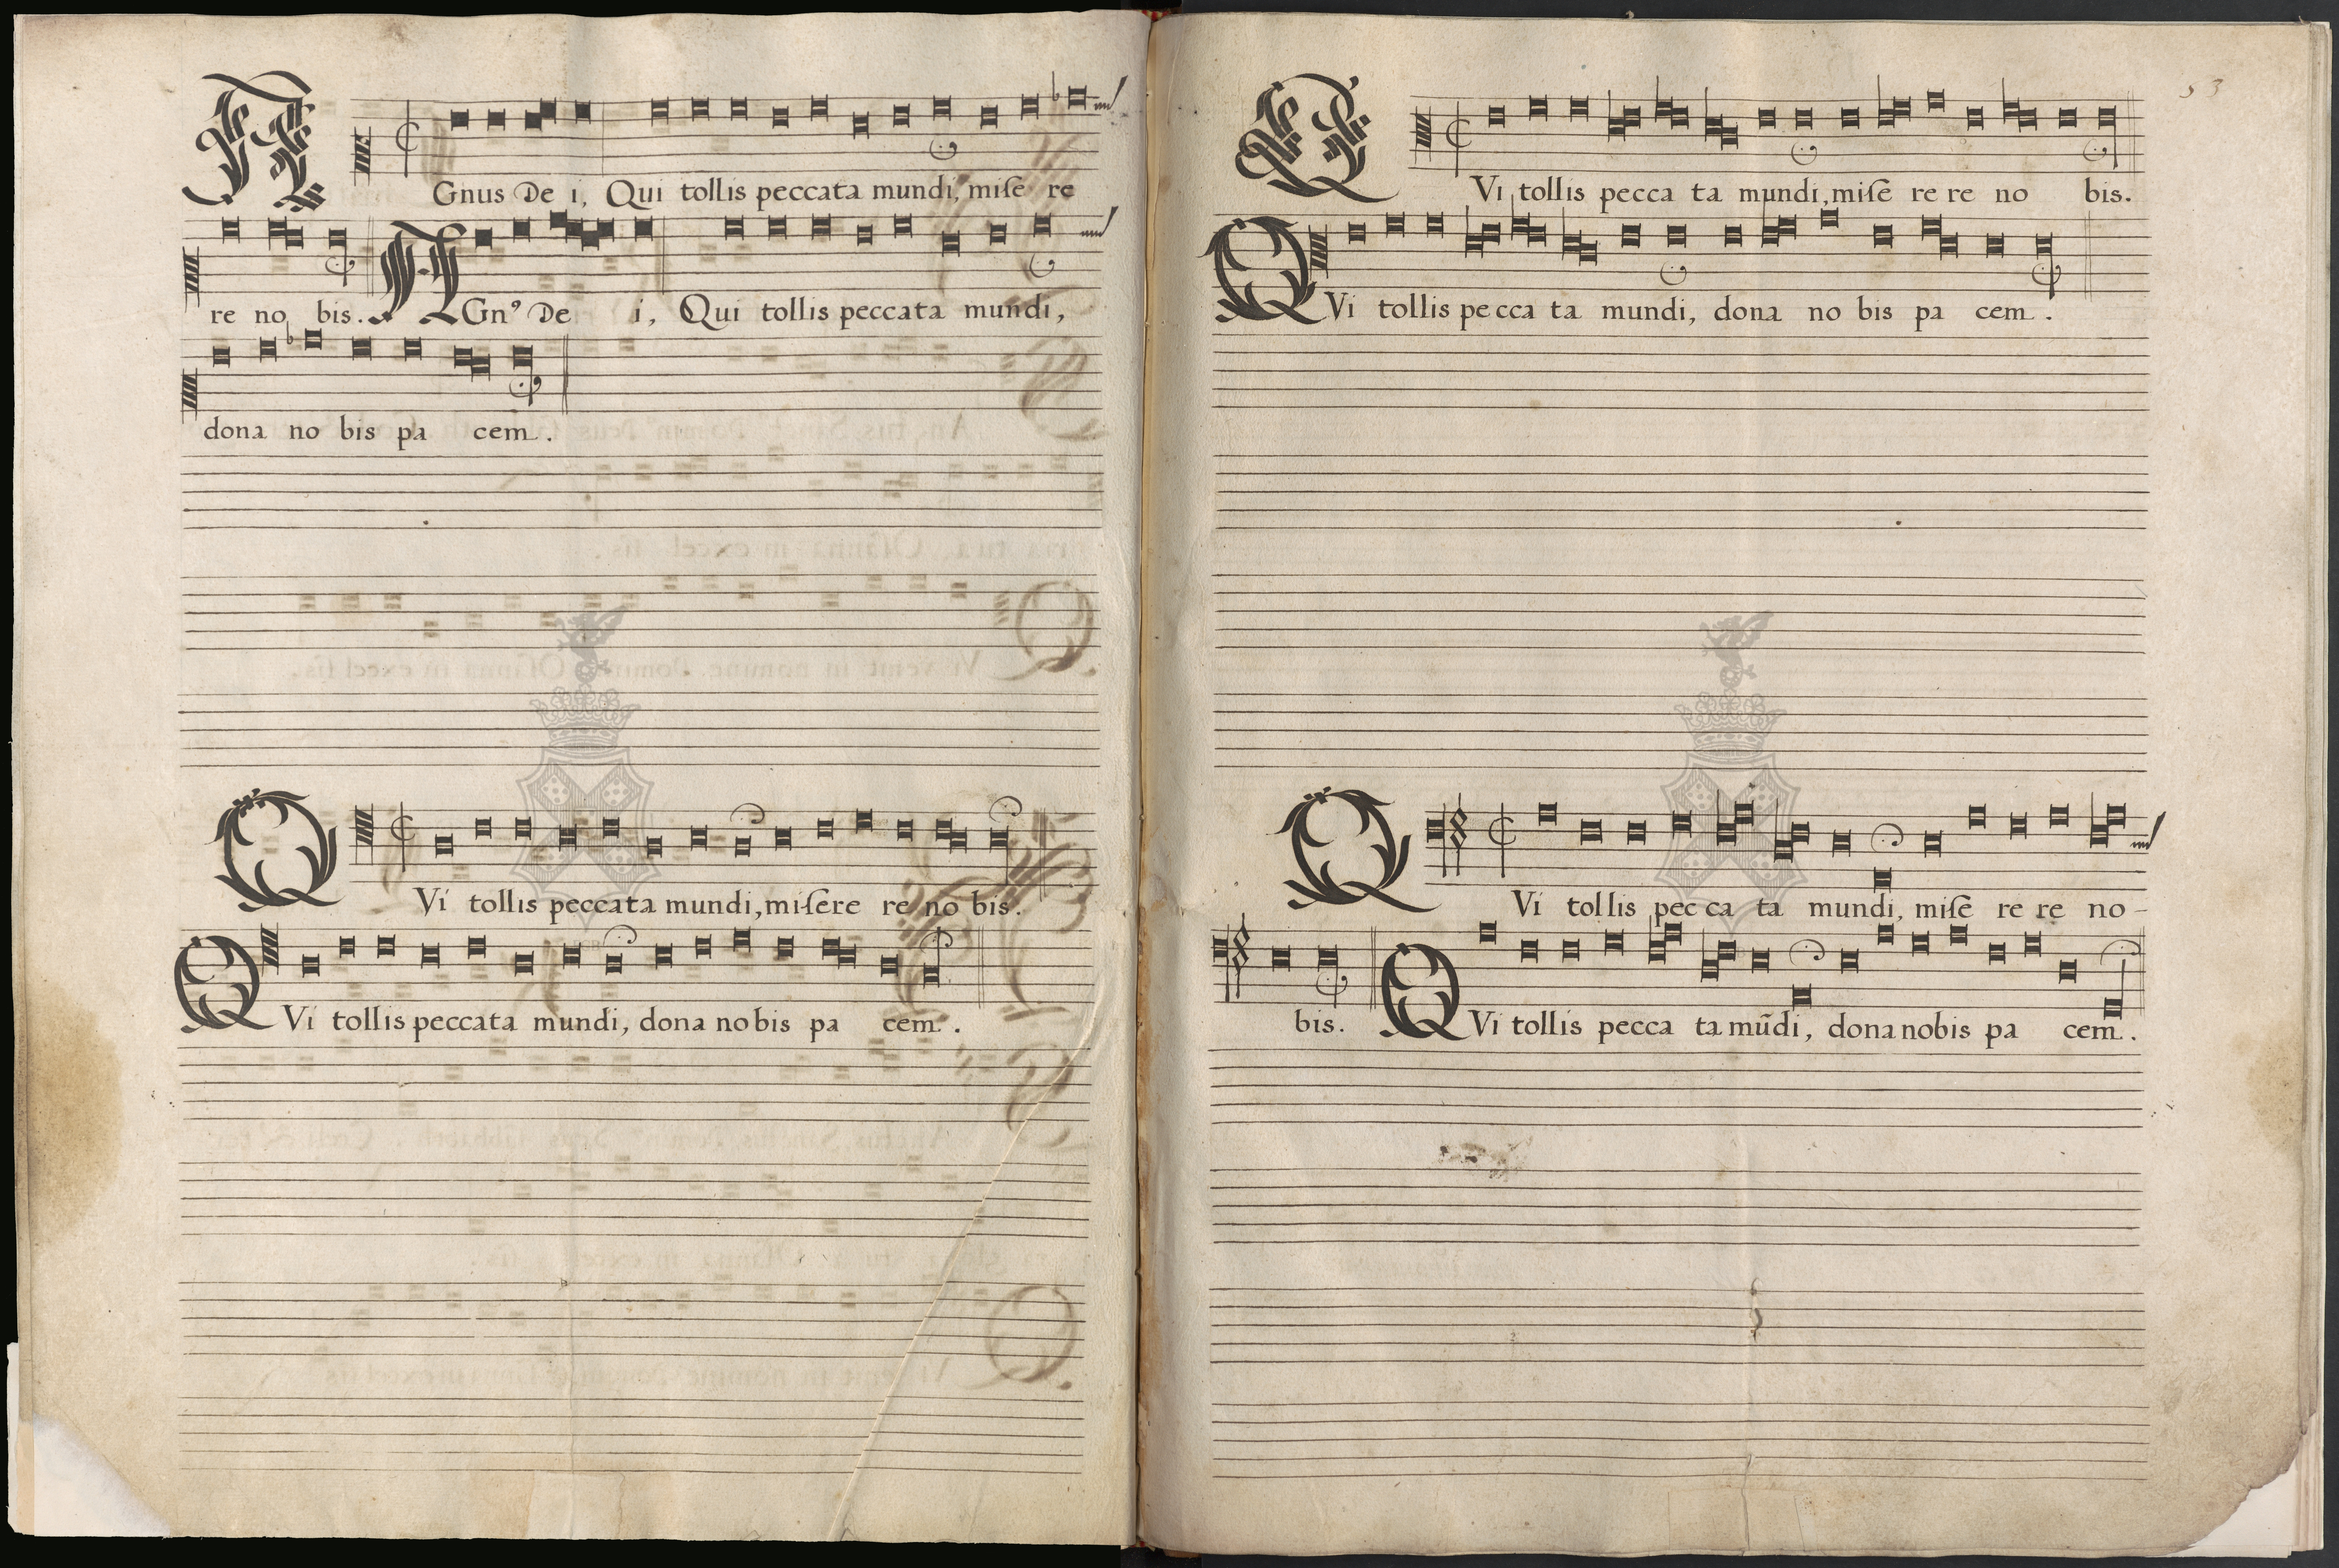 AGnus Dei, Qui tollis peccata mundi, miſe re
re no bis. AGnꝰ De i, Qui tollis peccata mundi,
dona no bis pa cem.
QVi tollis peccata mundi, miſere re no bis.
QVi tollis peccata mundi, dona nobis pa cem.
53
QVi tollis pecca ta mundi, miſe re re no bis.
QVi tollis pecca ta mundi, dona no bis pa cem.
QVi tollis pec ca ta mundi, miſe re re no-
bis. QVi tollis pecca ta mũdi, dona nobis pa cem.